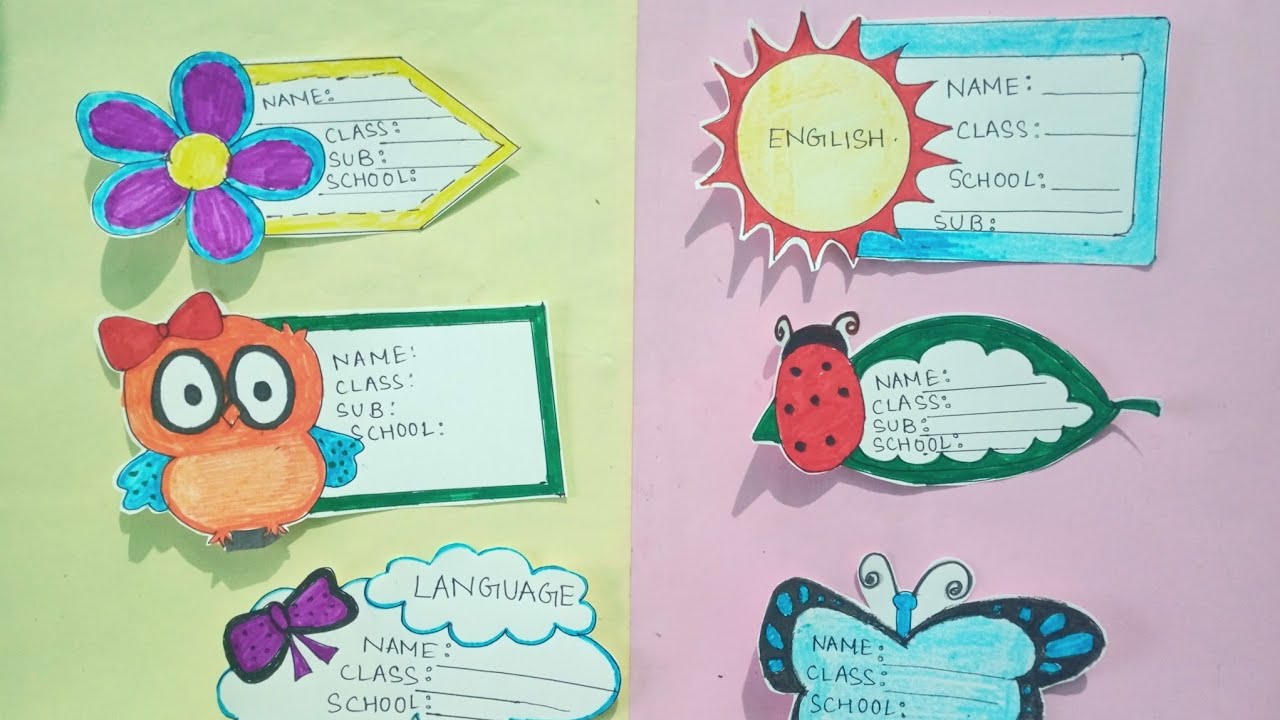 NAME:
CLASS:
SUB:
SCHOOL:
ENGLISH.
NAME:
CLASS:
SCHOOL:
SUB:
NAME:
CLASS:
SUB:
SCHOOL:
NAME:
CLASS:
SUB:
SCHOOL:
LANGUAGE
NAME:
CLASS:
SCHOOL:
NAME:
CLASS:
SCHOOL: